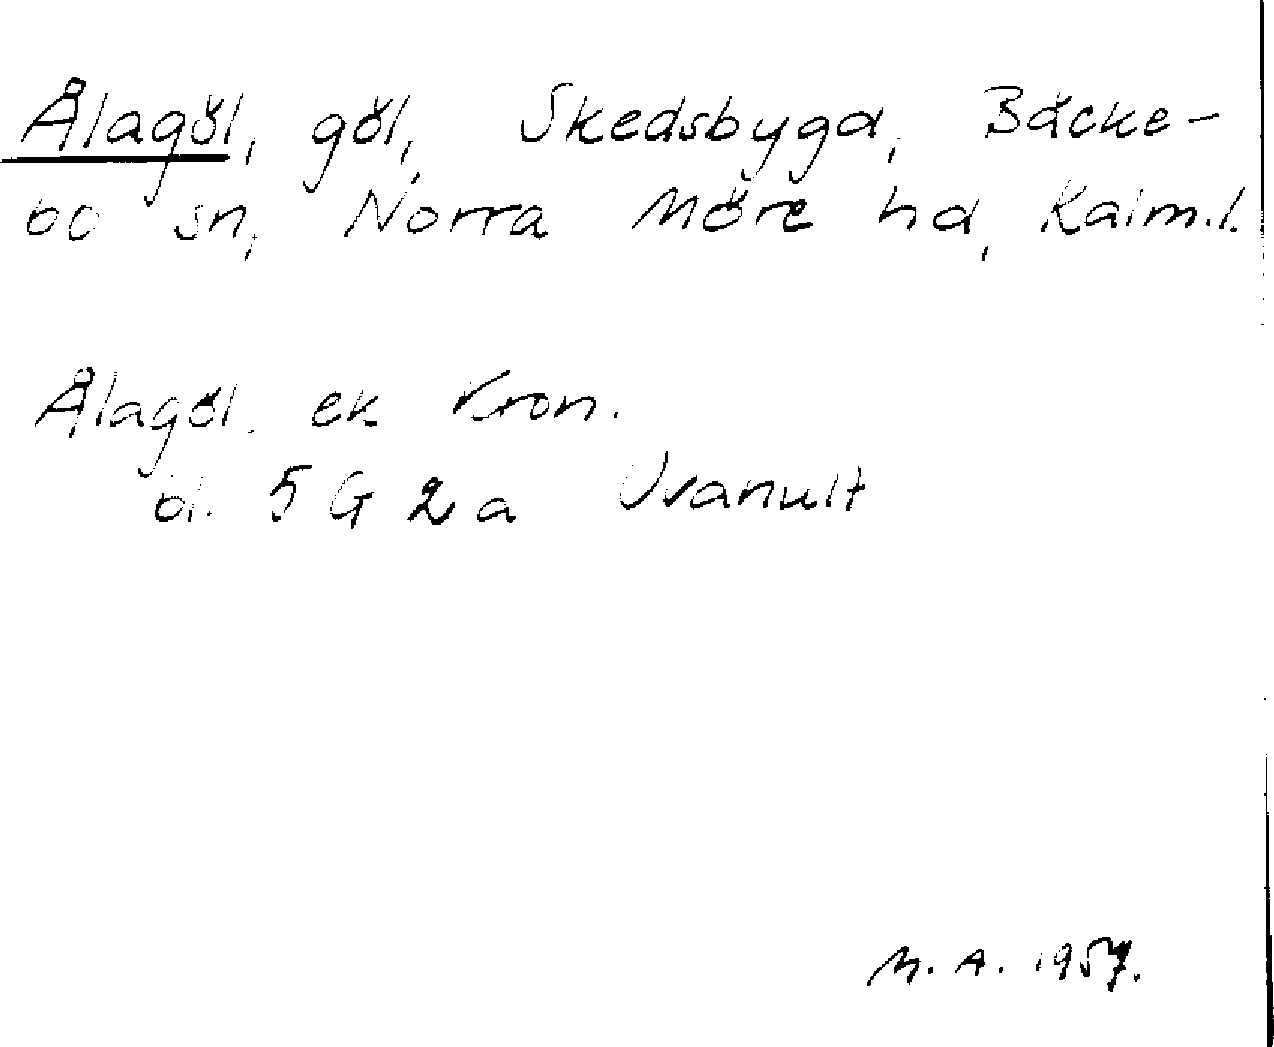 Ålagöl, göl, Skedsbygd, Bäcke-
bo sn, Norra Möre hd, Kalm.l.
Ålagöl. ek Kron.
bl. 5 G 2 a Uvahult
M. A. 1957.